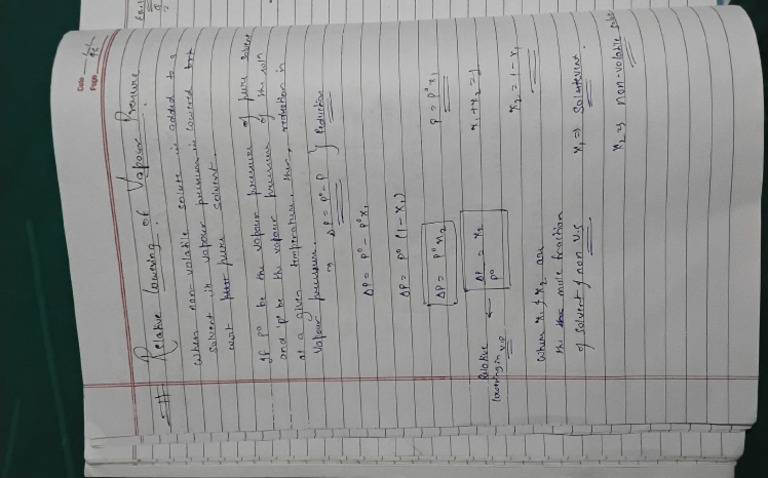 Date
Page
# Relative lowering of Vapour Pressure
when non-volatile solute is added to a
solvent its vapour pressure is lowered
w.r.t pure solvent.
If P° be the vapour pressure of pure solvent
and 'p' be the vapour pressure of the soln
at a given temperature, then, reduction in
Vapour pressure.
⇒ ΔP = P° - P } Reduction
ΔP = P° - P°x₁
P = P°x₁
ΔP = P° (1 - x₁)
x₁ + x₂ = 1
ΔP = P°x₂
x₂ = 1 - x₁
Relative lowering in V.P ← ΔP/P° = x₂
where x₁ & x₂ are
the mole fraction
of solvent & non v.s
x₁ ⇒
x₂ ⇒ non-volatile